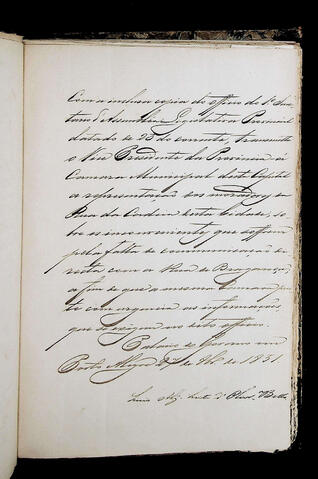 Com a inclusa copia do officio do 1º Secre
tario d'Assemblea Legislativa Provincial
datado de 23 do corrente, transmitte
o Vice Presidente da Provincia á
Camara Municipal desta Capital
a representação dos moradores da
Rua da Ladeira desta Cidade, so
bre os inconvenientes, que soffrem
pela falta de communicação di
recta com a Rua de Bragança,
a fim de que a mesma Camara
com urgencia as informações,
que se exigem no dito officio.
Palacio do Governo em
Porto Alegre 27 de 9bro de 1851
Luis Alz. Leite d'Olivª Bello